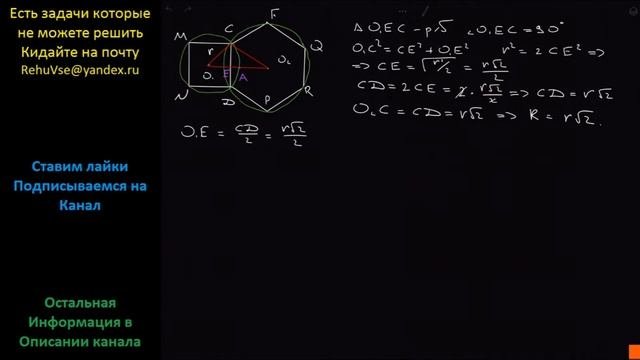 Есть задачи которые
не можете решить
Кидайте на почту
RehuVse@yandex.ru
Ставим лайки
Подписываемся на
Канал
Остальная
Информация в
Описании канала
M
C
F
Q
r
O₁
E
A
O₂
N
D
P
R
O₁E = CD/2 = r√2/2
∆ O₁EC - р/б ∠O₁EC = 90°
O₁C² = CE² + O₁E² r² = 2CE² ⇒
⇒ CE = √r²/2 = r√2/2
CD = 2CE = 2 · r√2/2 ⇒ CD = r√2
O₂C = CD = r√2 ⇒ R = r√2.